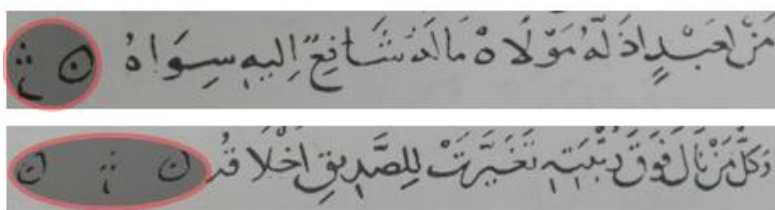 مَنْ لِعَبْدٍ اَذَلَّهُ مَوْلَاهْ مَا لَهُ شَافِعٌ اِلَيْهِ سِوَاهُ
وَكُلُّ مَنْ نَالَ فَوْقَ رُتْبَتِهِ تَغَيَّرَتْ لِلصَّدِيقِ اَخْلَاقُهُ